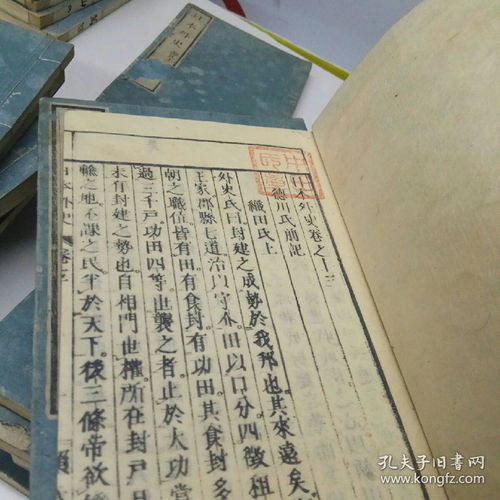 日本外史
日本外史卷之十三
德川氏前記
織田氏上
外史氏曰封建之成勢於我邦也其來遠矣
王家郡縣七道治以守介田以口分四徵租
朝之職位皆有田有食封有功田其食封多
過三千戶功田四等世襲之者止於大功當
未有封建之勢也自相門世權所在封戶日
輸之地不課之民半於天下後三條帝欲矯
日本外史 卷之
孔夫子旧书网